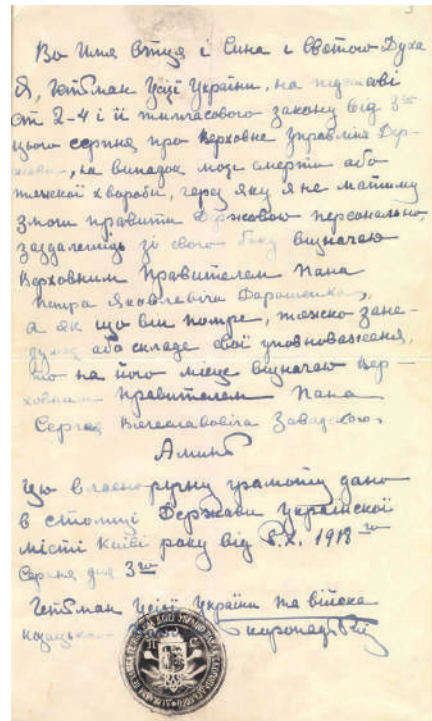 Во Имя Отця і Сина і Святого Духа
Я, Гетьман Усієї України, на підставі
ст 2-4 і її тимчасового закону від 3го
цього серпня про верховне управління Дер-
жавою, на випадок моєї смерти або
тяжкої хвороби, через яку я не матиму
змоги правити Державою персонально,
заздалегідь зі свого боку визначаю
Верховним Правителем Пана
Петра Яковлевіча Дорошенка,
а як що він помре, тяжко зане-
дужає або складе свої уповноваженя,
то на його місце визначаю Вер-
ховним Правителем Пана
Сергея Вячеславовіча Завадского
Аминь
Цю власноручну грамоту дано
в столиці Держави Української
місті Київі року від Р.Х. 1918го
Серпня дня 3го
Гетьман Усієї України та війска
козацького Скоропадський